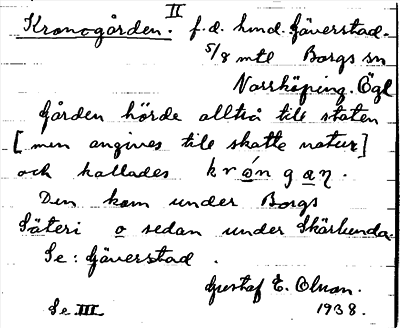 II
Kronogården. f.d. hmd. Gäverstad.
5/8 mtl Borgs sn
Norrköping. Ögl
Gården hörde alltså till staten
[men angives till skatte natur]
och kallades krǫ́ngan.
Den kom under Borgs
Säteri o sedan under Skärlunda.
Se: Gäverstad.
Gustaf E. Olson.
Se III 1938.